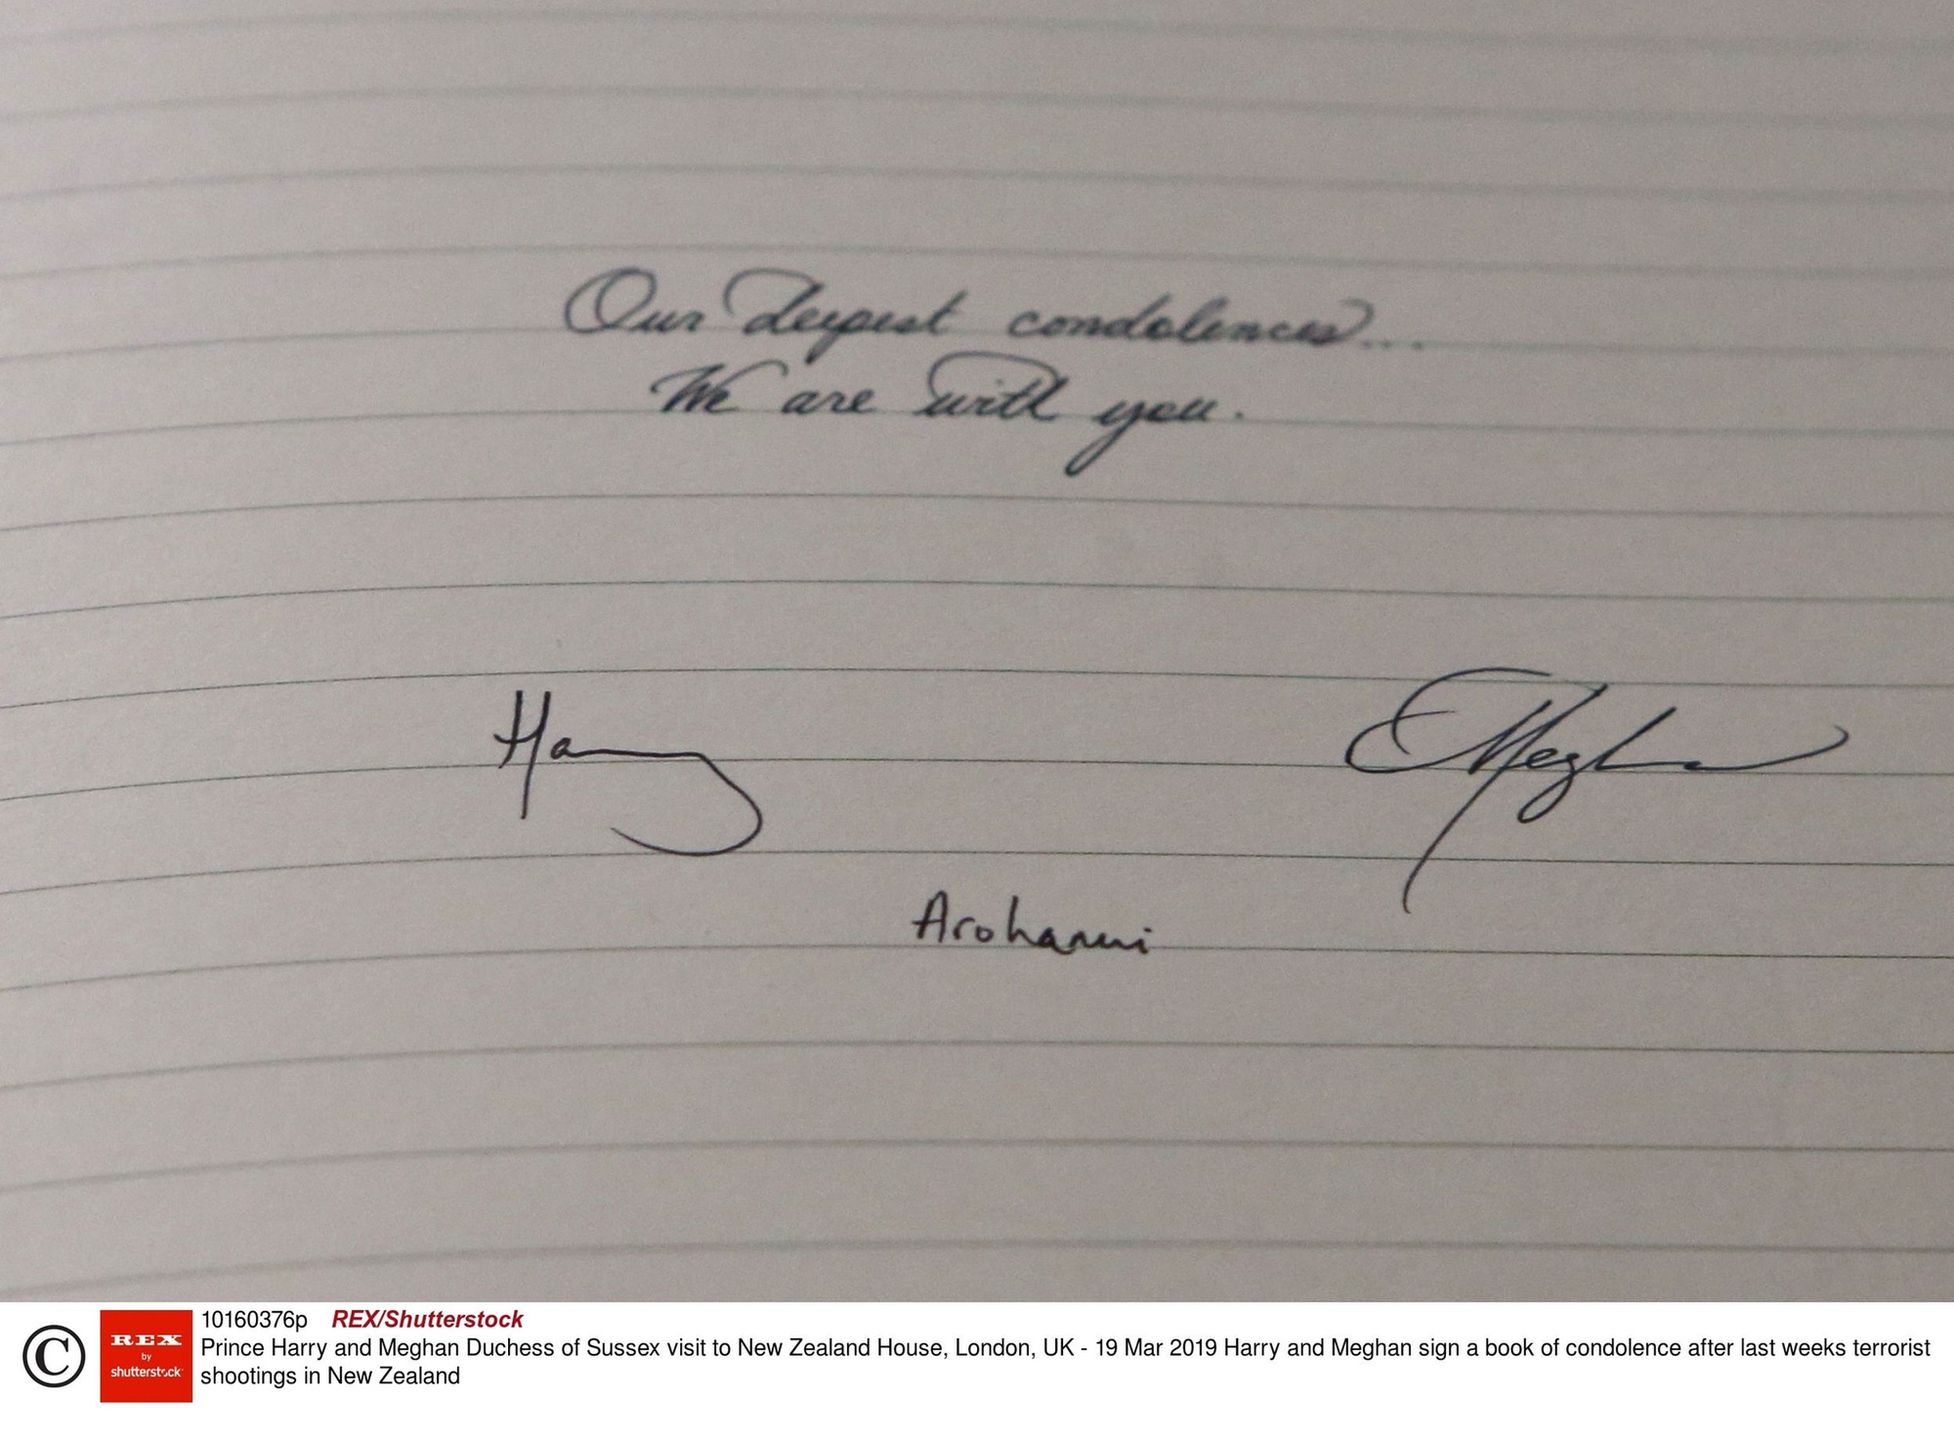 Our deepest condolences...
We are with you.
Harry
Meghan
Arohanui
© REX by shutterstock
10160376p REX/Shutterstock
Prince Harry and Meghan Duchess of Sussex visit to New Zealand House, London, UK - 19 Mar 2019 Harry and Meghan sign a book of condolence after last weeks terrorist
shootings in New Zealand